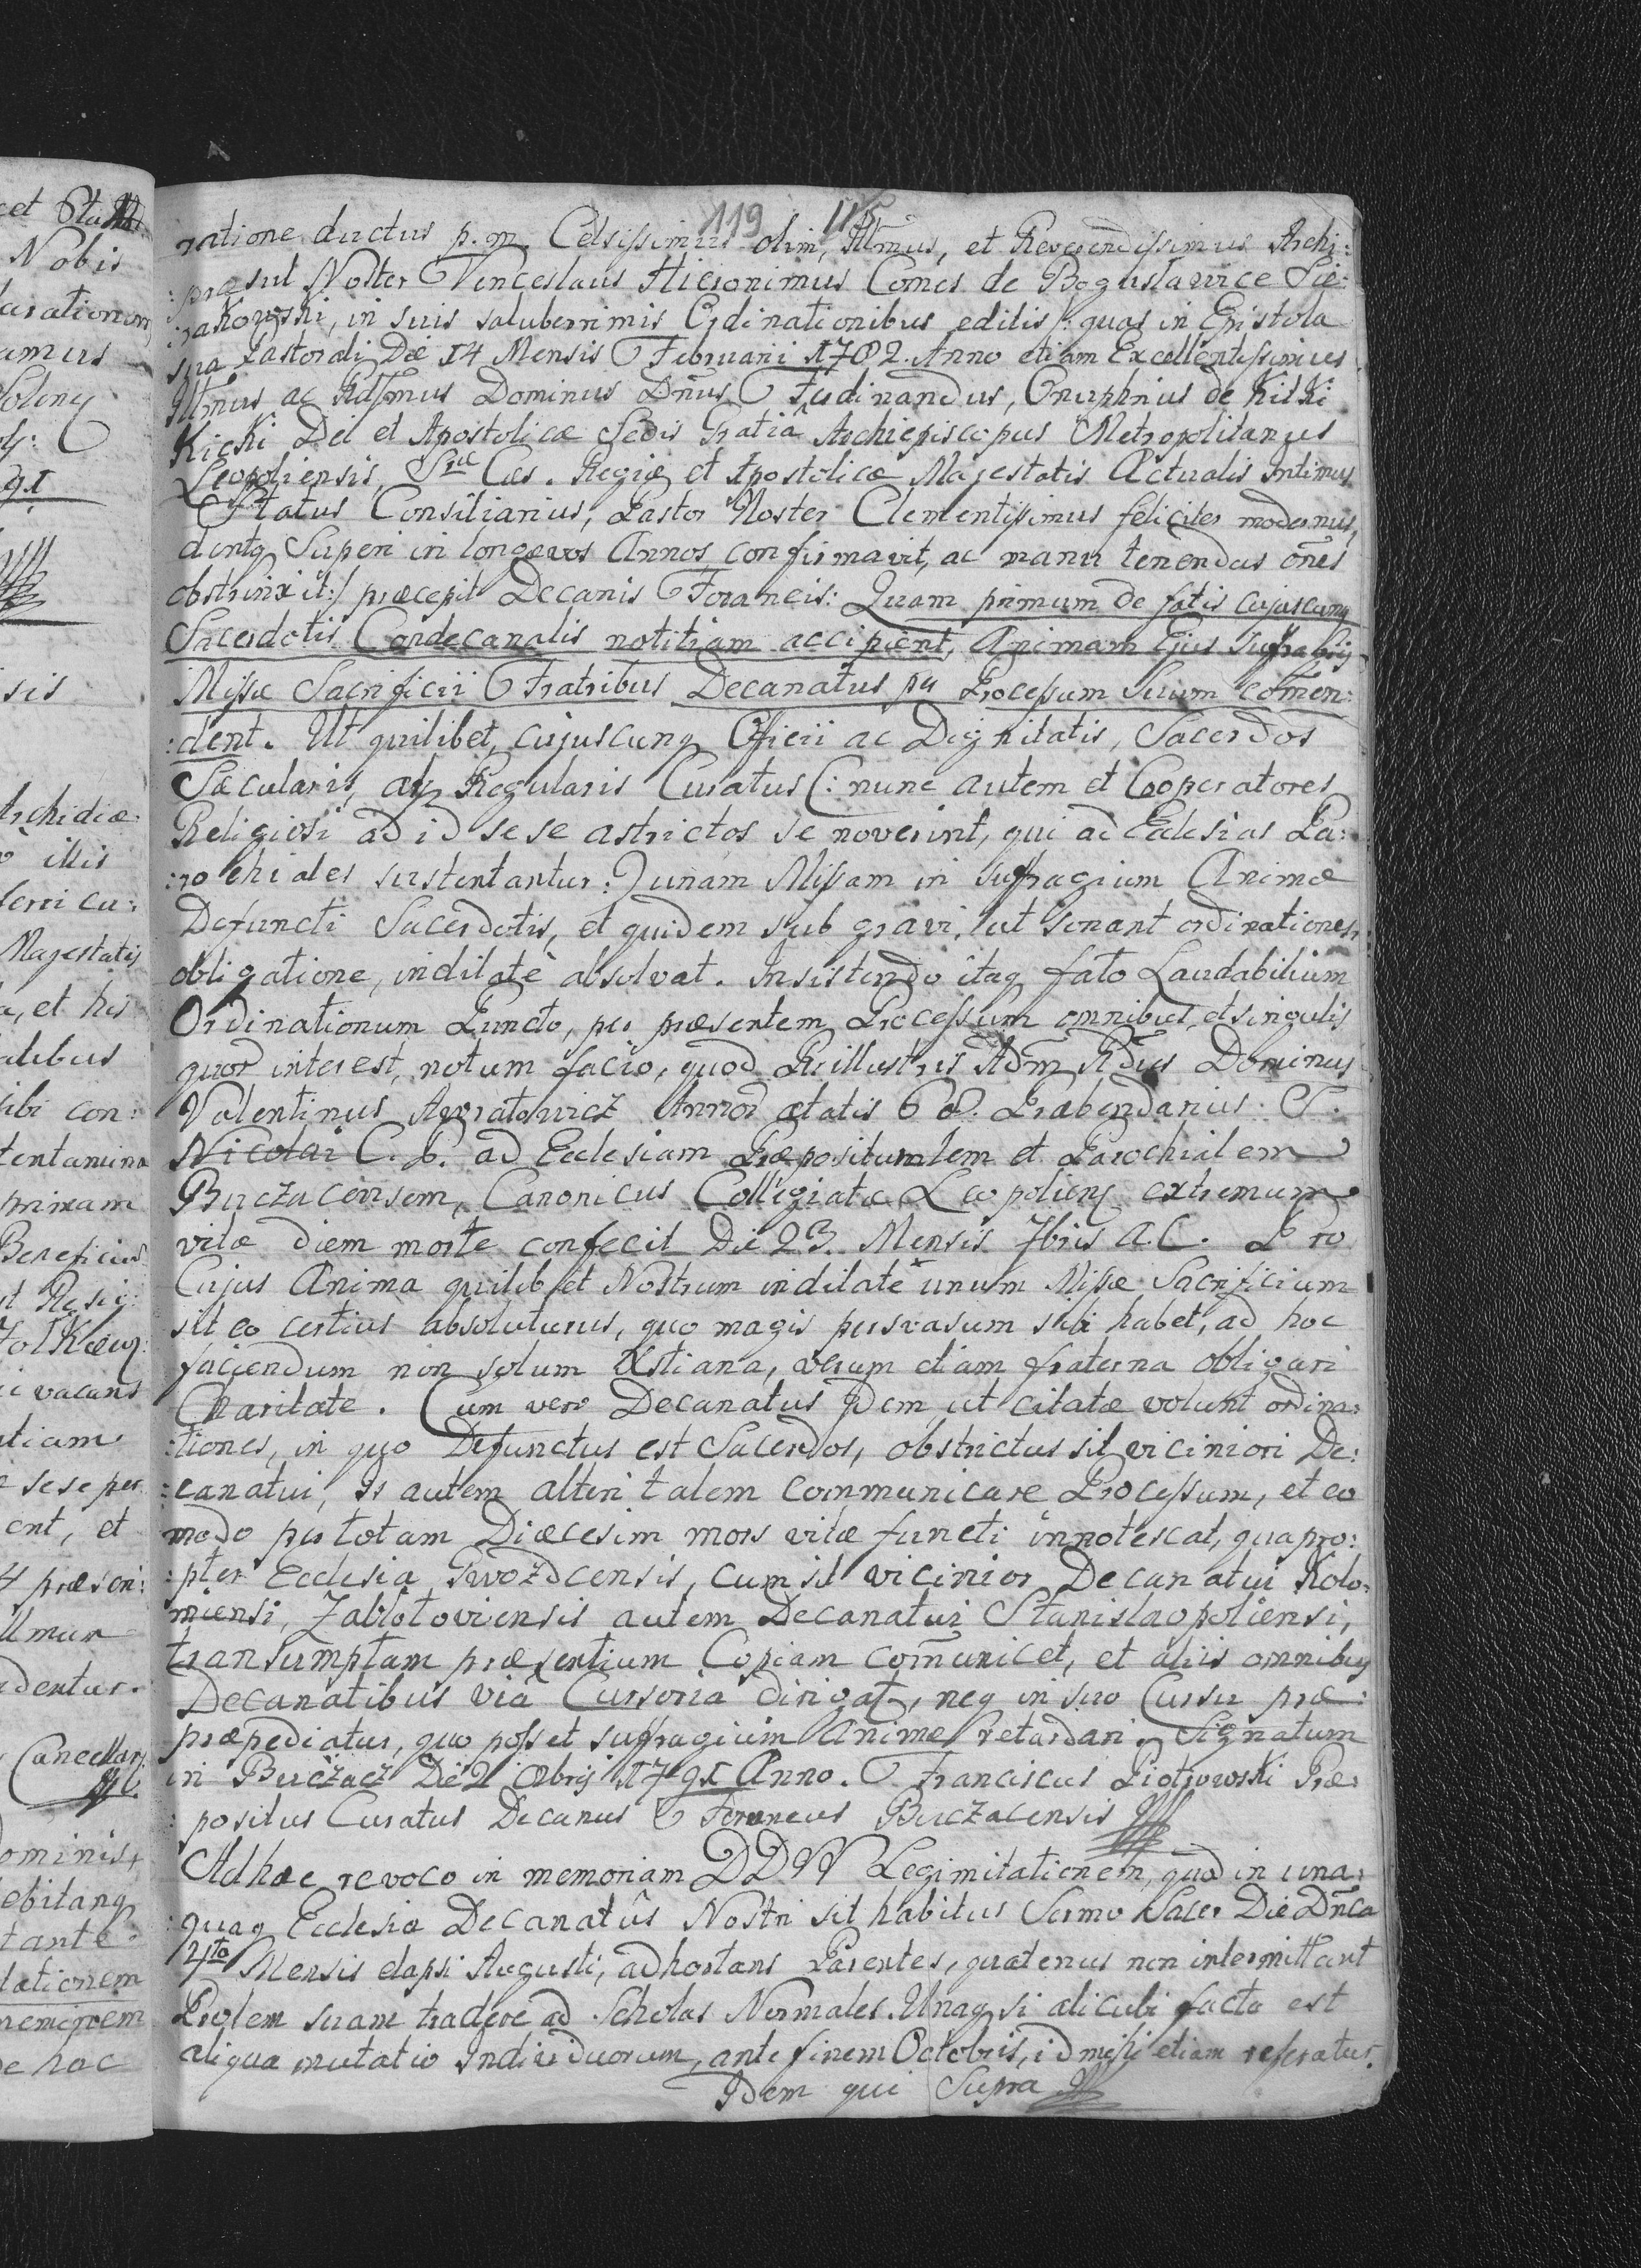 119 115
ratione ductus p. m. Celsissimus olim, Illmus, et Reverendissimus Archi:
:præsul Noster Venceslaus Hieronimus Comes de Bogusławice Sie:
:rakowski, in suis saluberrimis Ordinationibus editis /: quas in Epistola
sua Pastorali Die 14 Mensis Februarii 1782. Anno etiam Excellentissimus
Illmus ac Rdssmus Dominus Dnus Ferdinandus, Onuphrius de Kitki
Kicki Dei et Apostolicæ Sedis Gratiâ Archiepiscopus Metropolitanus
Leopoliensis, Sræ Cæs. Regiæ et Apostolicæ Majestatis Actualis Intimus
Status Consiliarius, Pastor Noster Clementissimus feliciter modernus,
dentq Superi in longævos Annos, confirmavit, ac manu tenendas ones
obstrinxit :/ præcepit Decanis Foraneis: Quam primum de fatis cujuscunq
Sacerdotis Condecanalis notitiam accipient, Animam Ejus suffragijs
Missæ Sacrificii Fratribus Decanatus per Processum Suum comen:
:dent. Ut quilibet, cujuscunq Officii ac Dignitatis, Sacerdos
Sæcularis, atq Regularis Curatus (: nunc autem et Cooperatores
Religiosi ad id sese astrictos se noverint, qui ad Eclesias Pa:
:rochiales sustentantur :) unam Missam in suffragium Animæ
Defuncti Sacerdotis, et quidem sub gravi, ut sonant ordinationes,
obligatione, indilatè absolvat. Insistendo itaq fato Laudabilium
Ordinationum Puncto, per præsentem Processum omnibus, et singulis
quor interest, notum facio, quod Perillustris Adm Rdus Dominus
Valentinus Agratowicz Annor ætatis 68. Præbendarius S.
Nicolai C. P. ad Ecclesiam Præpositurnlem et Parochialem
Buczacensem, Canonicus Collegiatæ Leopoliens extremum
vitæ diem morte confecit Die 23. Mensis 7bris A. C. Pro
Cujus Anima quilibet Nostrum indilatè unum Missæ Sacrificium
sit eo certius absoluturus, quo magis persvasum sibi habet, ad hoc
faciendum non solum Xstiana, verum etiam fraterna obligari
Charitate. Cum vero Decanatus Idem, ut citatæ volunt ordina:
:tiones, in quo Defunctus est Sacerdos, obstrictus sit viciniori De:
:canatui, is autem alteri talem communicare Processum, et eo
modo per totam Diæcesim mors vitæ functi innotescat, quapro:
:pter Ecclesia Gwozdcensis, cum sit vicinior Decanatui Kolo:
miensi, Zabłotoviensis autem Decanatui Stanislaopoliensi,
transumptam præsentium Copiam comunicet, et aliis omnibus
Decanatibus viâ Cursoria dirigat, neq in suo Cursu præ:
præpediatur, quo posset suffragium Animæ retardari. Signatum
in Buczacz Die 2 8bris 1791 Anno. Franciscus Piotrowski Præ:
:positus Curatus Decanus Foraneus Buczacensis
Ad hæc revoco in memoriam DDVV Legimitationem, quod in una:
:quaq Ecclesia Decanatûs Nostri sit habitus Sermo Sacer Die Dnca
4ta Mensis elapsi Augusti, adhortans Parentes, quatenus non intermittant
Prolem suam tradere ad Scholas Normales. Unaq si alicubi facta est
aliqua mutatio Individuorum, ante finem Octobris, id mihi etiam referatur.
Idem qui Supra